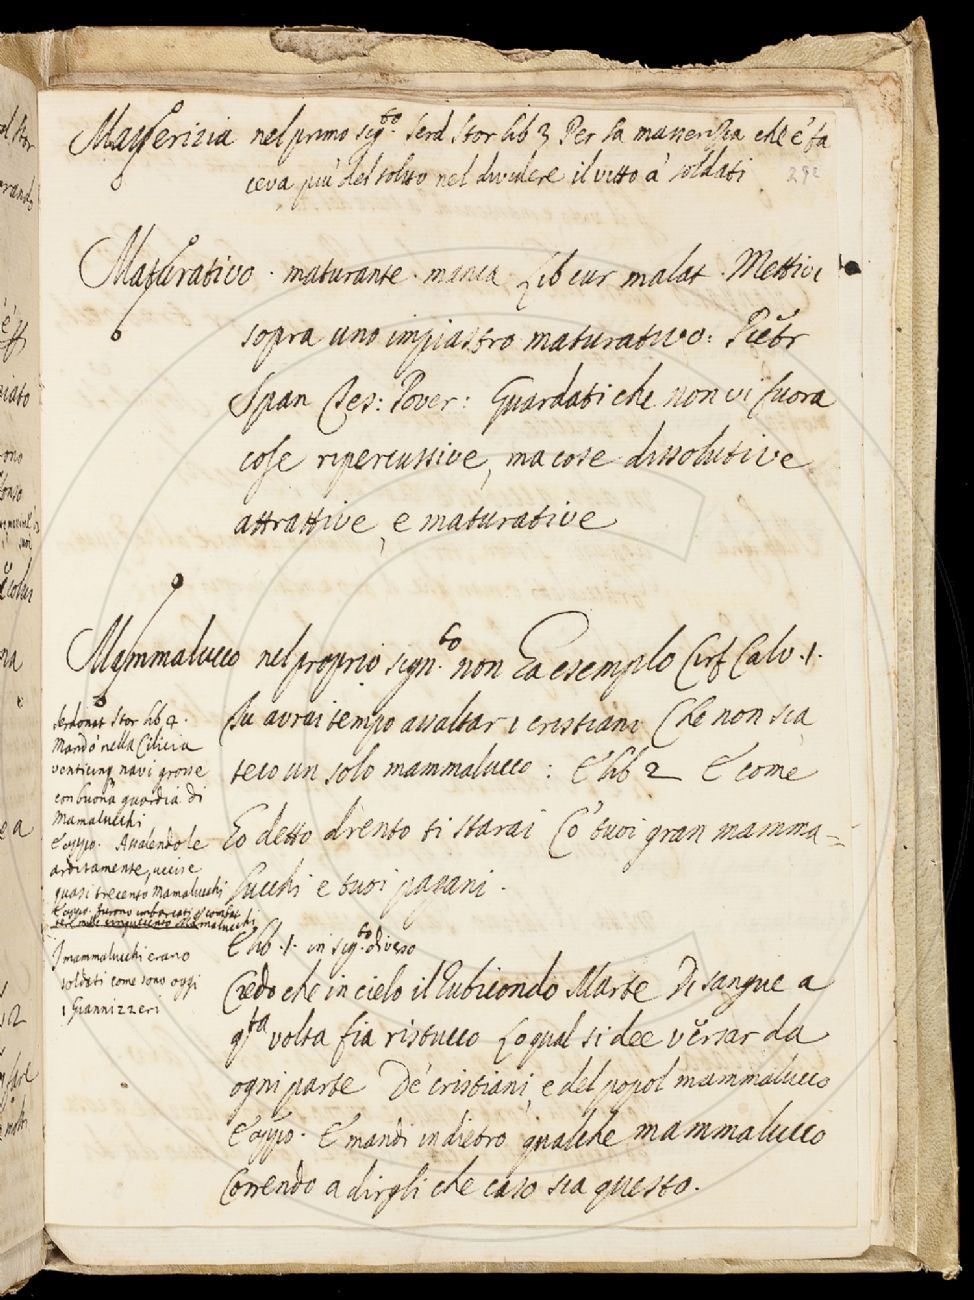 Masserizia nel primo sig.to Serd Stor lib 3 Per la masserizia che e' fa
ceva piu' del solito nel dividere il vitto a' soldati
292
Maturativo . maturante . manca Lib cur malat . Mettivi
sopra uno impiastro maturativo: Pietr
Span Tes: Pover: Guardati che non vi fuora
cose ripercussive, ma cose dissolutive
attrattive, e maturative
Mammalucco nel proprio sign.to non ha esempio Cirf Calv .1.
Tu avrai tempo assaltar i cristiani Che non sia
teco un solo mammalucco: E lib 2 E come
Ho detto drento ti starai Co' tuoi gran mamma=
lucchi e tuoi pagani .
E lib .1. in sig.to diverso
Credo che in cielo il Rubicondo Marte Di sangue a
q.ta volta fia ristucco Lo qual si dee versar da
ogni parte De' cristiani, e del popol mammalucco
E appo . E mandi indietro qualche mammalucco
Correndo a dirgli che caso sia questo .
Serdonat Stor lib 4 .
Mandò nella Cilicia
venticinq navi grosse
con buona guardia di
Mamalucchi
E appo . Assalendole
arditamente, uccise
quasi trecento Mamalucchi
E appo. furono imbarcati
mille cinquecento Mamalucchi
I mammalucchi erano
soldati come sono oggi
i Giannizzeri